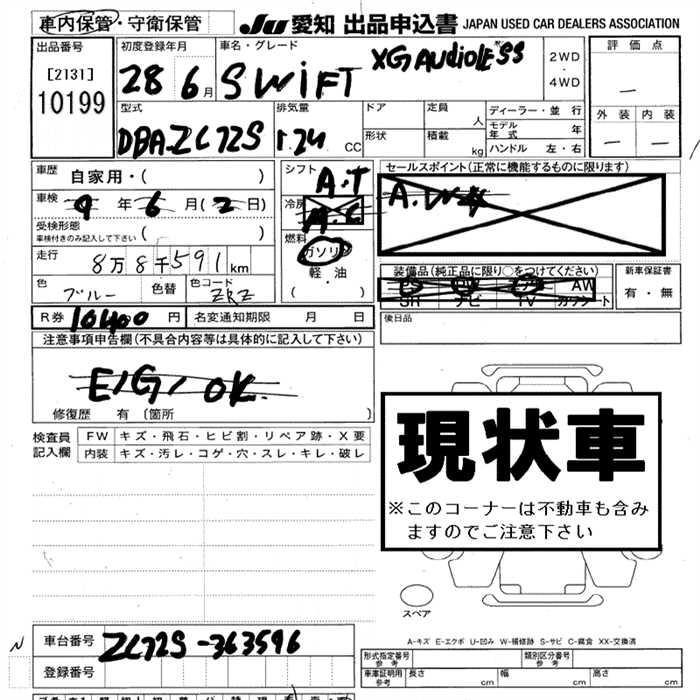 車内保管・守衛保管
JU 愛知 出品申込書 JAPAN USED CAR DEALERS ASSOCIATION
出品番号
[2131]
10199
初度登録年月
28 6月
車名・グレード
SWIFT XG AUDIOLESS
2WD
・
4WD
評価点
—
外装 内装
— —
型式
DBA-ZC72S
排気量
1.24 CC
ドア
形状
定員 人
積載 kg
ディーラー・並行
モデル年式 年
ハンドル 左・右
車歴
自家用・( )
車検
9年6月(2日)
受検形態
車検付きのみ記入して下さい ( )
走行
8万8千591km
色
ブルー
色替
色コード
ZRZ
シフト
A.T
冷房
A.C
燃料
ガソリン
・
軽油
( )
セールスポイント(正常に機能するものに限ります)
装備品(純正品に限り○をつけてください)
PS PW エアB AW
SR ナビ TV カワシート
新車保証書
有・無
R券 10400円
名変通知期限 月 日
後日品
注意事項申告欄(不具合内容等は具体的に記入して下さい)
E/G/OK.
修復歴 有 〔箇所 〕
検査員
記入欄
FW キズ・飛石・ヒビ割・リペア跡・X要
内装 キズ・汚レ・コゲ・穴・スレ・キレ・破レ
現状車
※このコーナーは不動車も含み
ますのでご注意下さい
スペア
A-キズ E-エクボ U-凹み W-補修跡 S-サビ C-腐食 XX-交換済
N
車台番号
ZC72S-363596
登録番号
形式指定番号
参考
類別区分番号
参考
車庫証明用
参考
長さ cm 幅 cm 高さ cm